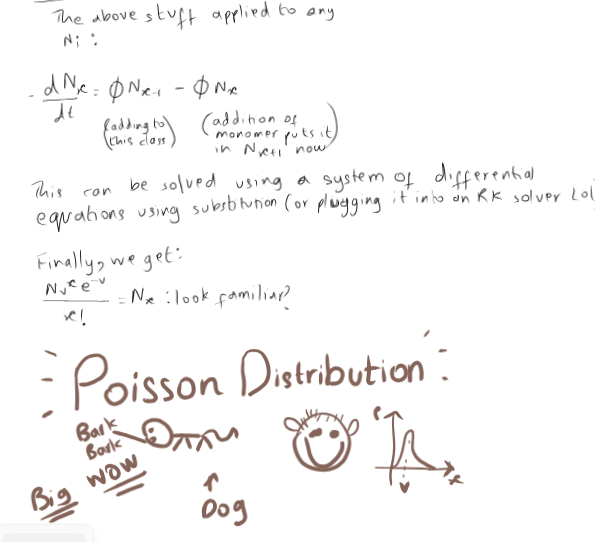 The above stuff applied to any
Ni :
- dNx/dt = ϕNx-1 - ϕNx
(adding to this class) (addition of monomer puts it in Nx+1 now)
This can be solved using a system of differential
equations using substitution (or plugging it into an RK solver lol
Finally, we get:
Nν^x e^-ν / x! = Nx : look familiar?
Poisson Distribution
Bark
Bark
Big WOW
↑
Dog
P
ν
x